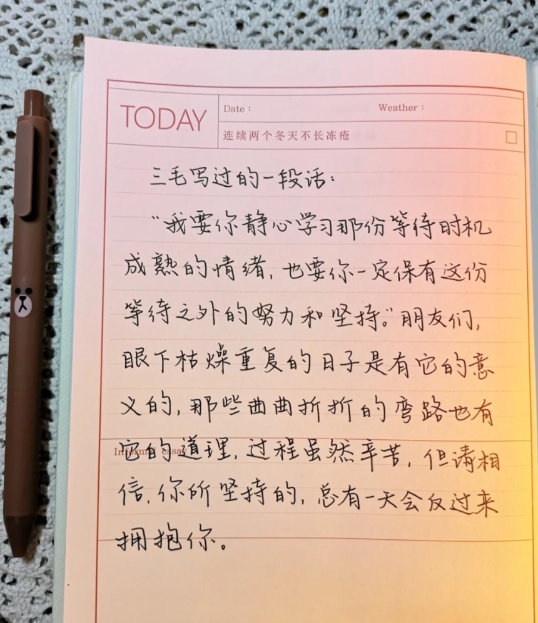 TODAY
Date：
Weather：
连续两个冬天不长冻疮
三毛写过的一段话：
“我要你静心学习那份等待时机
成熟的情绪，也要你一定保有这份
等待之外的努力和坚持。”朋友们，
眼下枯燥重复的日子是有它的意
义的，那些曲曲折折的弯路也有
它的道理，过程虽然辛苦，但请相
信，你所坚持的，总有一天会反过来
拥抱你。